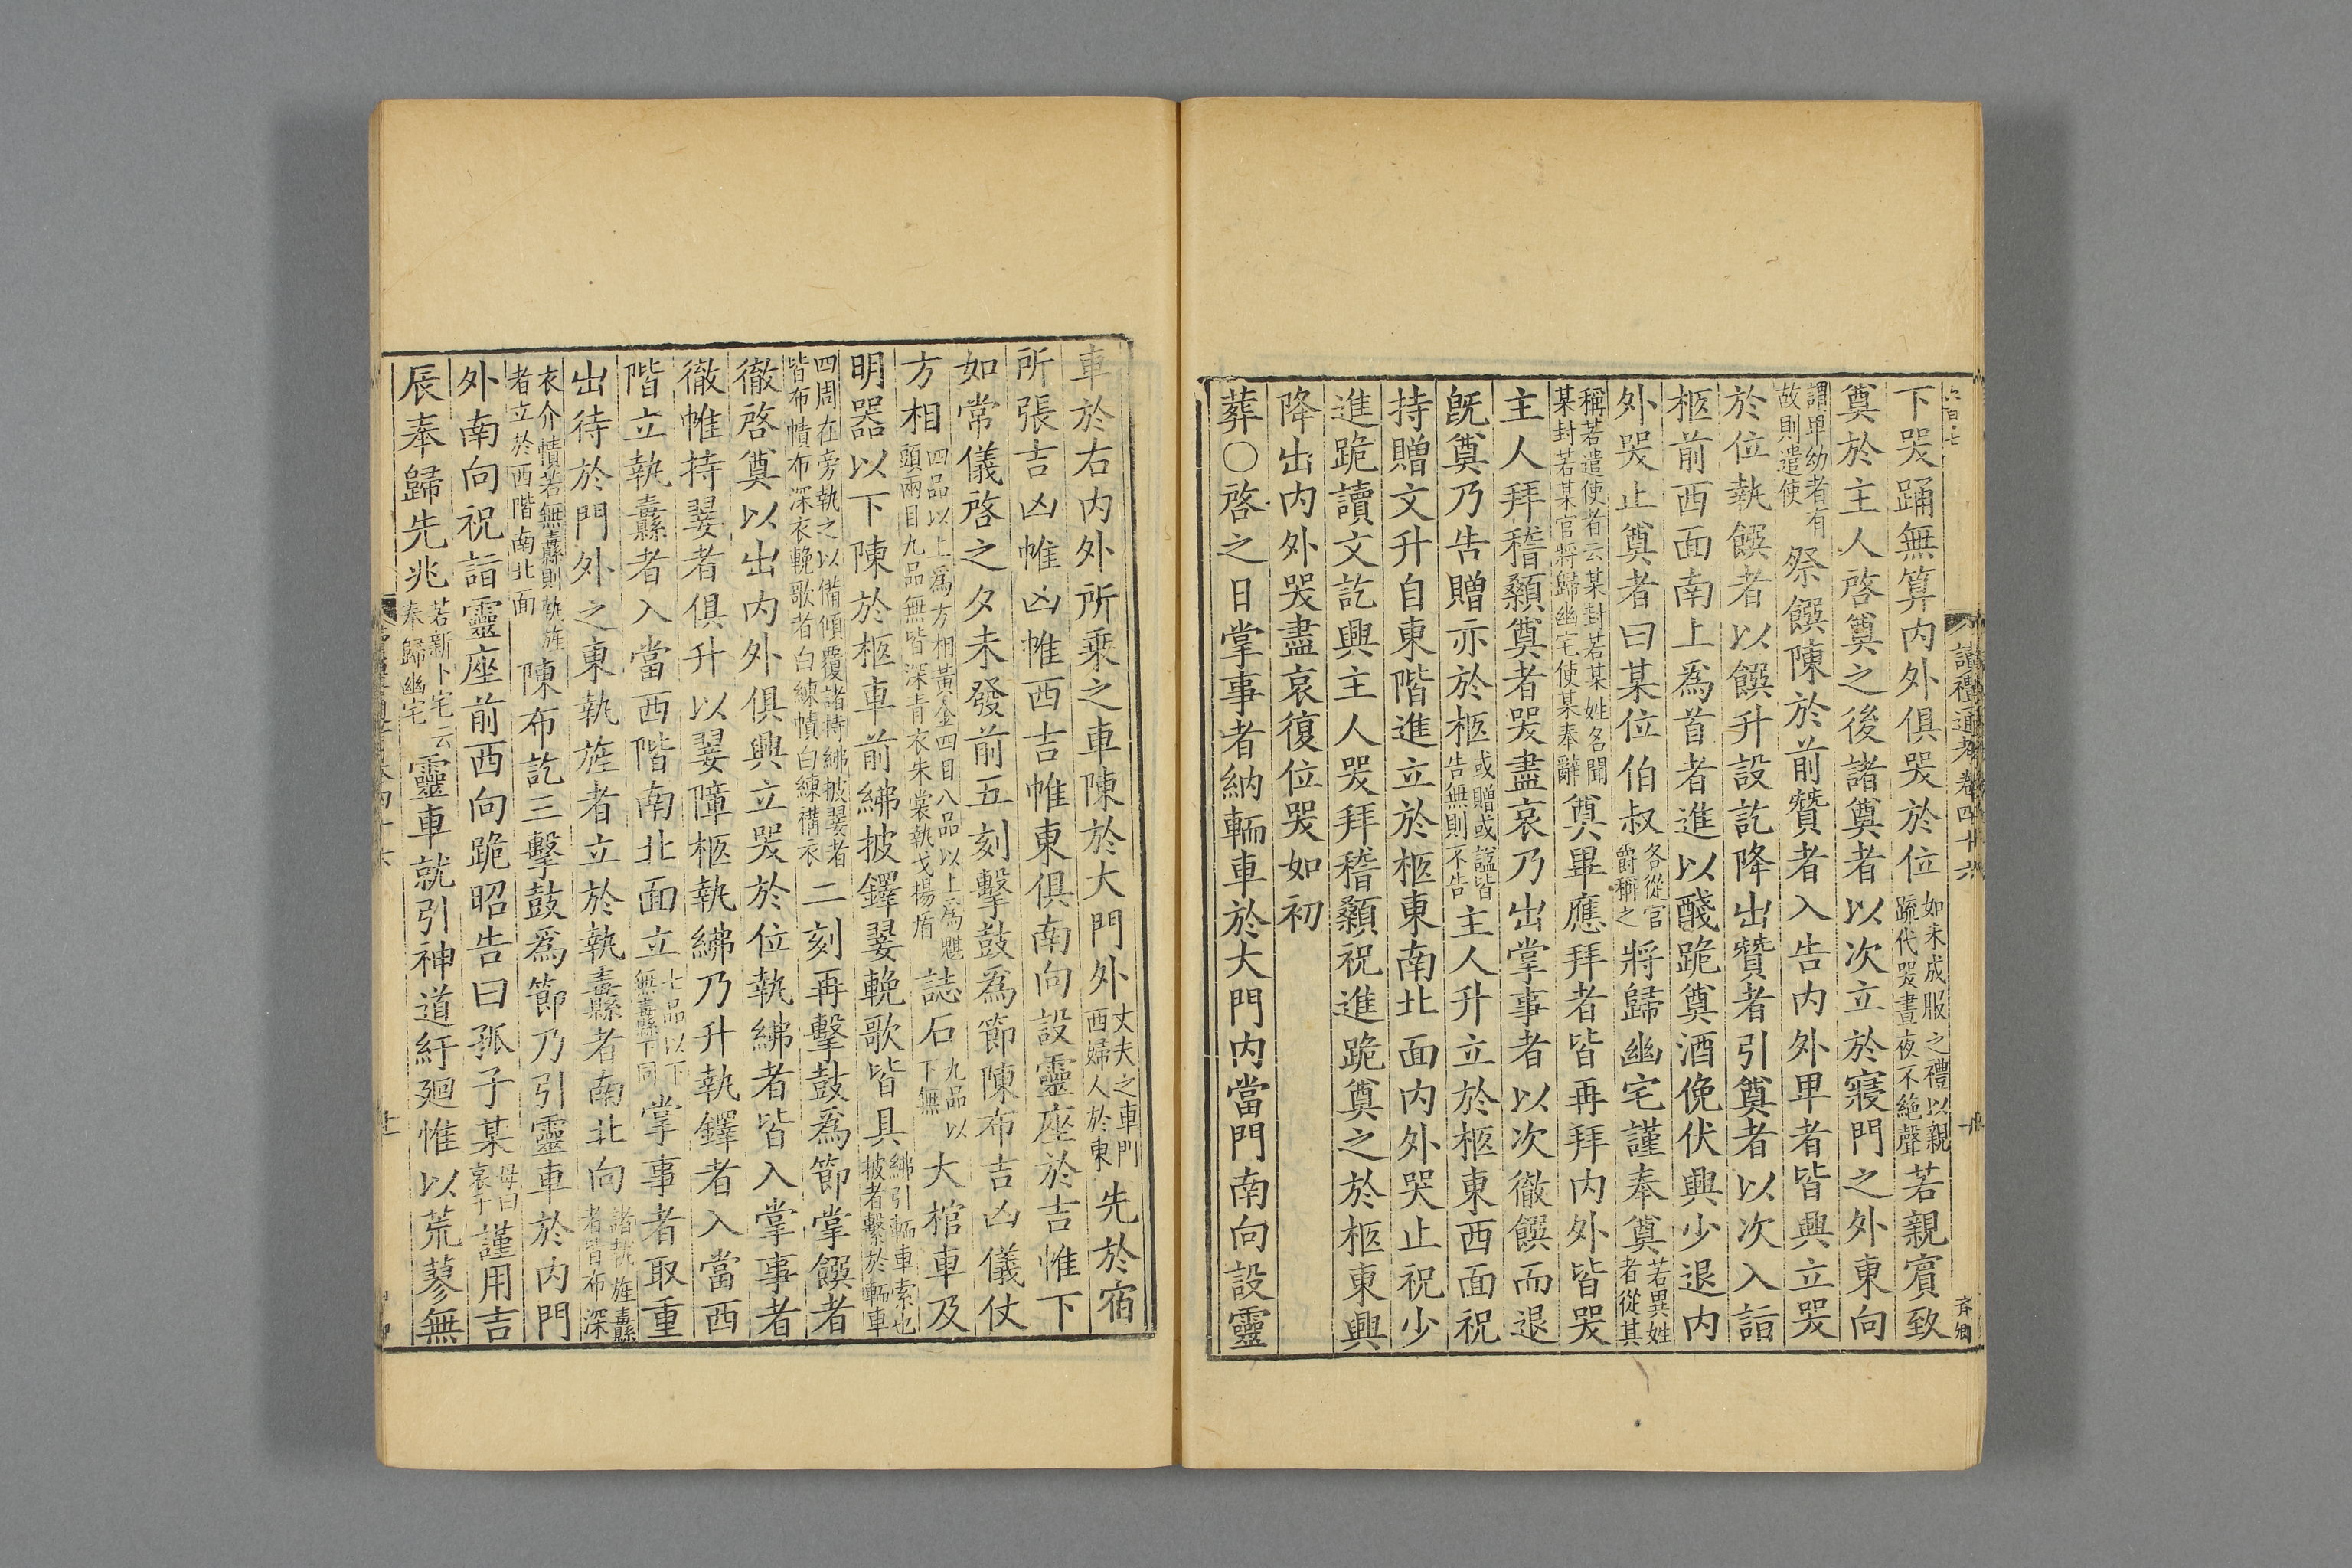 六百七
讀禮通考卷四十六
下哭踊無算內外俱哭於位如未成服之禮以親疏代哭晝夜不絶聲若親賓致
奠於主人啓奠之後諸奠者以次立於寢門之外東向
謂卑幼者有故則遣使祭饌陳於前贊者入告內外卑者皆興立哭
於位執饌者以饌升設訖降出贊者引奠者以次入詣
柩前西面南上爲首者進以醆跪奠酒俛伏興少退內
外哭止奠者曰某位伯叔各從官爵稱之將歸幽宅謹奉奠若異姓者從其
稱若遣使者云某封若某姓名聞某封若某官將歸幽宅使某奉辭奠畢應拜者皆再拜內外皆哭
主人拜稽顙奠者哭盡哀乃出掌事者以次徹饌而退
旣奠乃告贈亦於柩或贈或謚皆告無則不告主人升立於柩東西面祝
持贈文升自東階進立於柩東南北面內外哭止祝少
進跪讀文訖興主人哭拜稽顙祝進跪奠之於柩東興
降出內外哭盡哀復位哭如初
葬○啓之日掌事者納輀車於大門內當門南向設靈
車於右內外所乘之車陳於大門外丈夫之車門西婦人於東先於宿
所張吉凶帷凶帷西吉帷東俱南向設靈座於吉帷下
如常儀啓之夕未發前五刻擊鼓爲節陳布吉凶儀仗
方相四品以上爲方相黃金四目八品以上爲魌頭兩目九品無皆深青衣朱裳執戈揚盾誌石九品以下無大棺車及
明器以下陳於柩車前紼披鐸翣輓歌皆具紼引輀車索也披者繫於輀車
四周在旁執之以備傾覆諸持紼披翣者皆布幘布深衣輓歌者白練幘白練褠衣二刻再擊鼓爲節掌饌者
徹啓奠以出內外俱興立哭於位執紼者皆入掌事者
徹帷持翣者俱升以翣障柩執紼乃升執鐸者入當西
階立執纛者入當西階南北面立七品以下無纛下同掌事者取重
出待於門外之東執旌者立於執纛者南北向諸執旌纛者皆布深
衣介幘若無纛則執旌者立於西階南北面陳布訖三擊鼓爲節乃引靈車於內門
外南向祝詣靈座前西向跪昭告曰孤子某母曰哀子謹用吉
辰奉歸先兆若新卜宅云奉歸幽宅靈車就引神道紆廻惟以荒蓼無